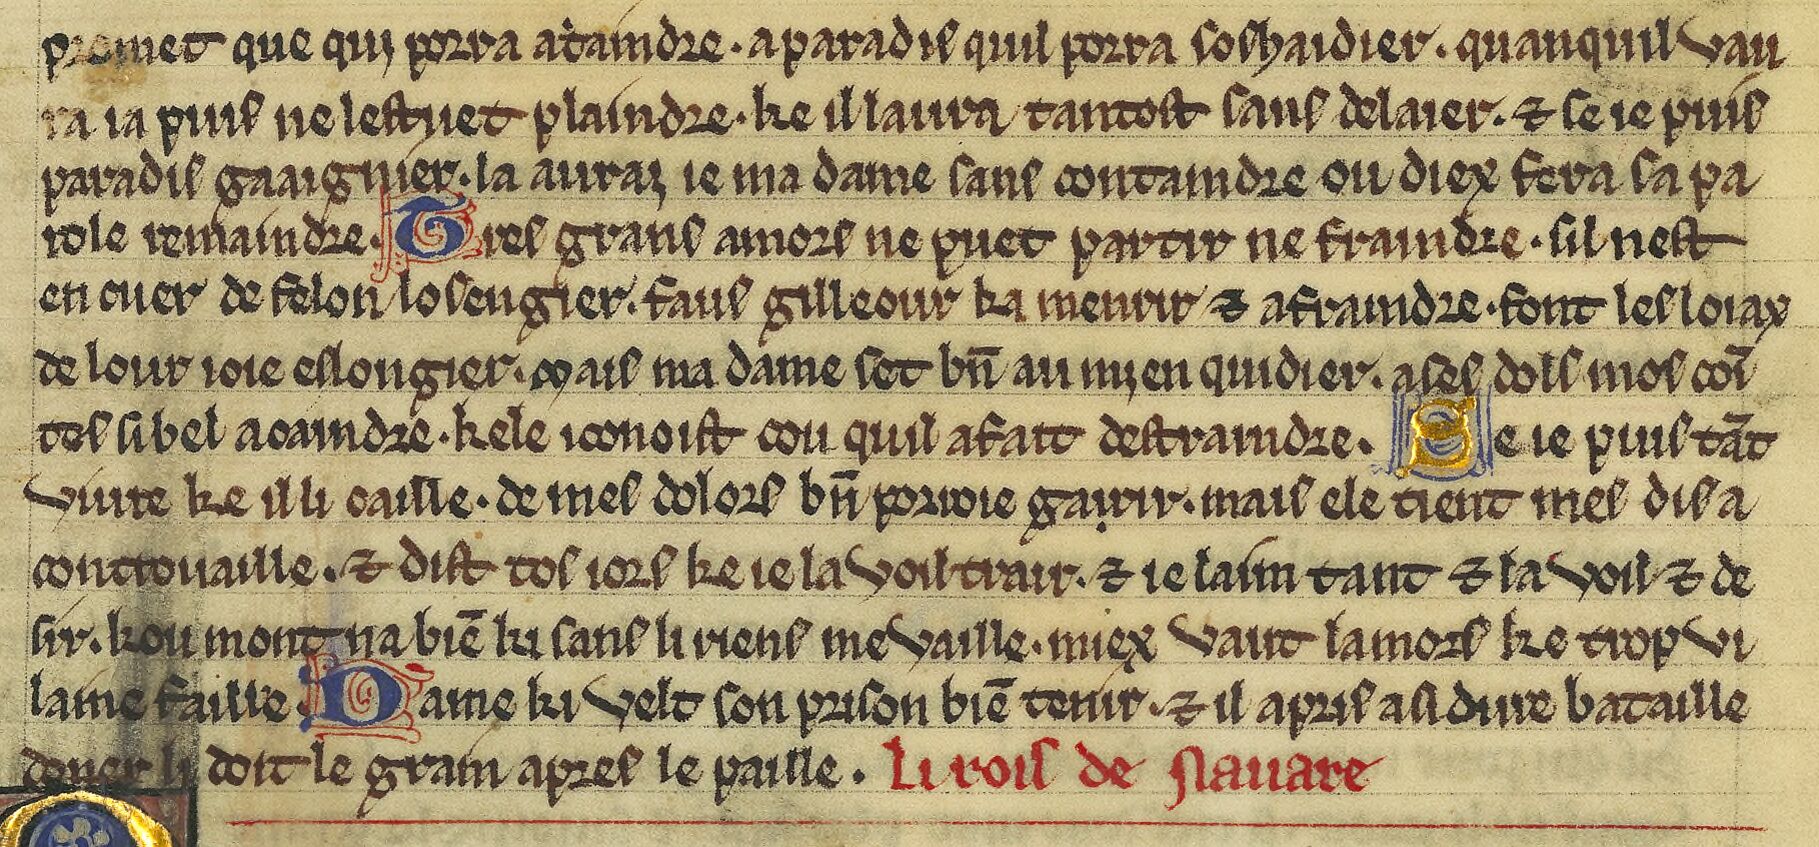 promet que qui porra ataindre · a paradis quil porra soshaidier · quanquil vau
ra ia puis ne lestuet plaindre · ke il laura tantost sans delaier · ⁊ se ie puis
paradis gaaignier · la aurai ie ma dame sans containdre ou diex fera sa pa
role remaindre · Tres grans amors ne puet partir ne fraindre · sil nest
en cuer de felon losengier · faus gilleour ka mentir ⁊ a fraindre · font les loiax
de lour ioie eslongier · mais ma dame set bn̄ au mien quidier · ases dols mos coī
tes si bel acaindre · kele iconoist cou quil a fait destraindre · Se ie puis tāt
viure ke il li caille · de mes dolors bn̄ porroie garir · mais ele tient mes dis a
controuaille · ⁊ dist tos iors ke ie la voil trair · ⁊ ie laim tant ⁊ la voil ⁊ de
sir · kou mont na biē ki sans li riens me vaille · miex vaut la mors ke trop vi
laine faille · Dame ki velt son prison biē tenir · ⁊ il a pris a si dure bataille
doner li doit le grain apres le paille · Li rois de Nauare